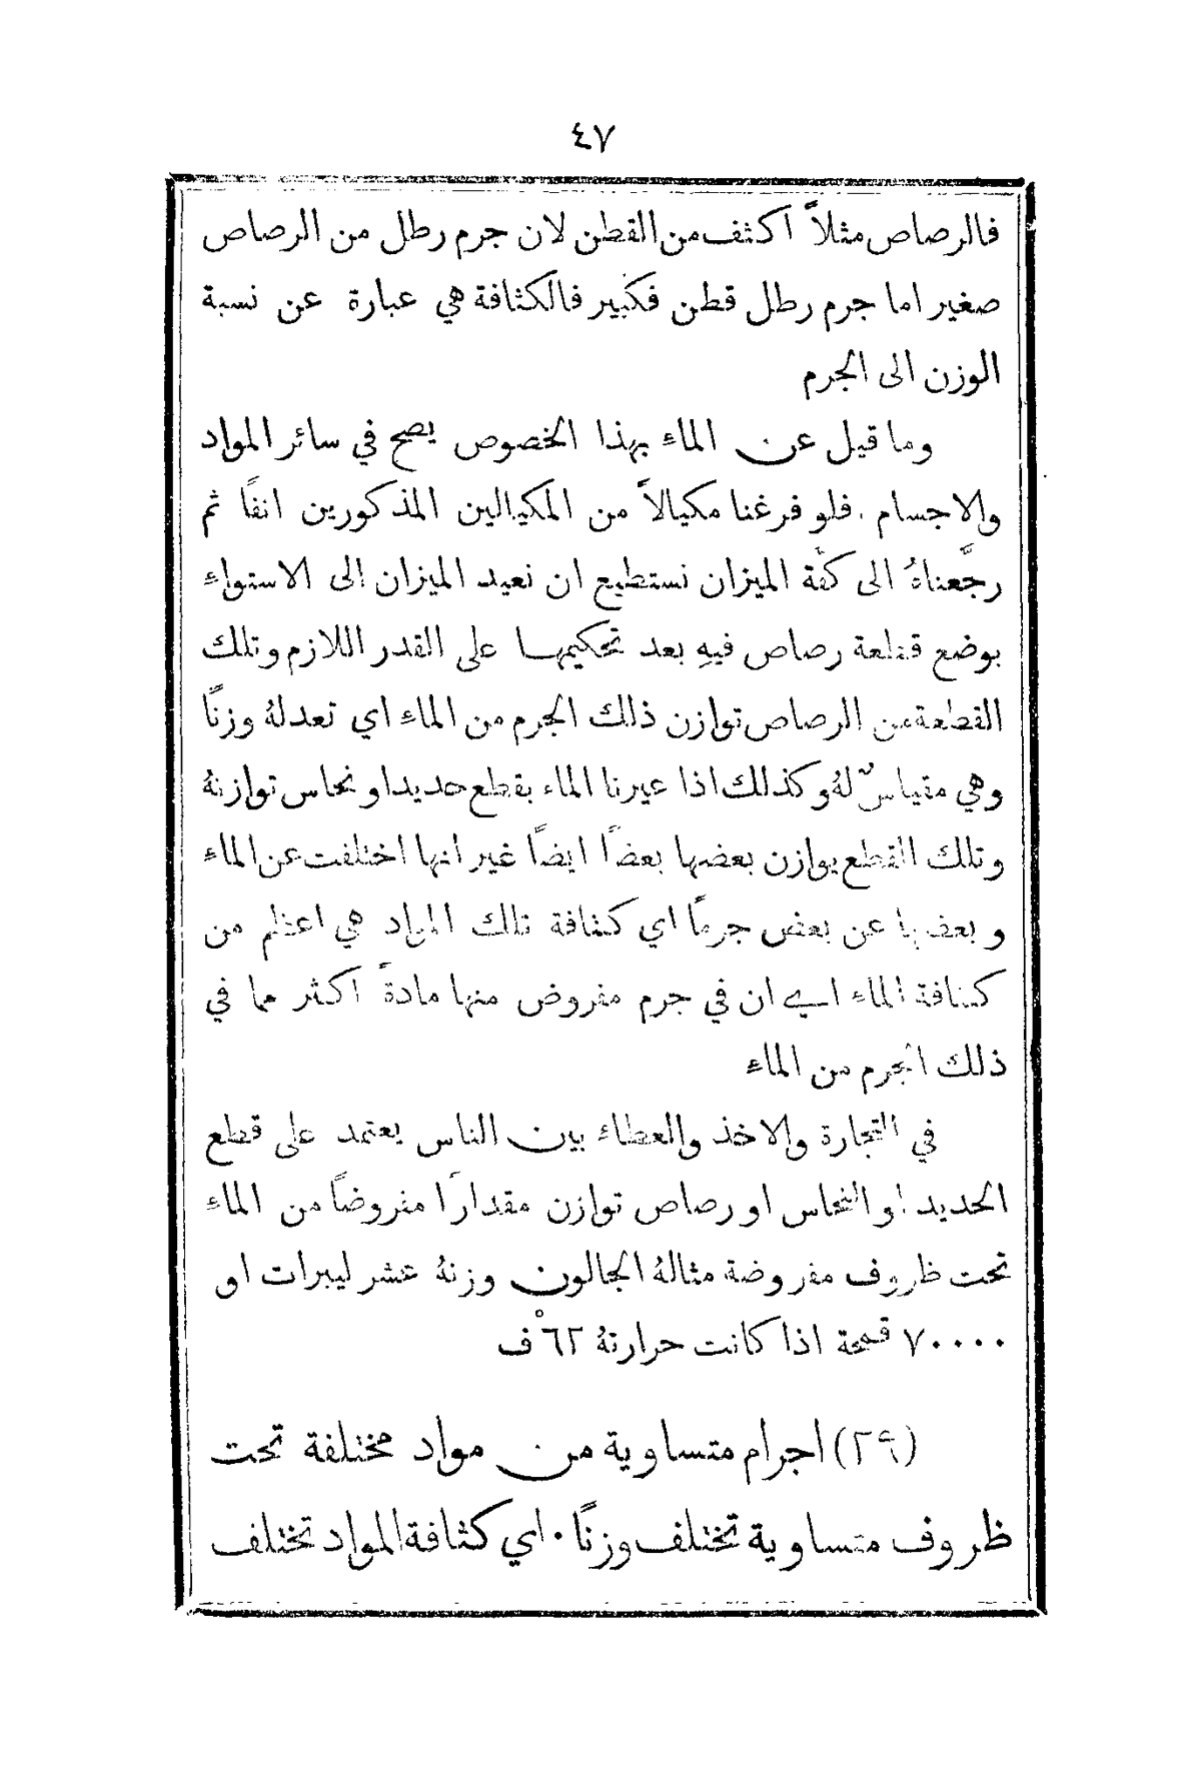 ٤٧
فالرصاص مثلاً اكثف من القطن لان جرم رطل من الرصاص
صغير اما جرم رطل قطن فكبير فالكثافة هي عبارة عن نسبة
الوزن الى الجرم
وما قيل عن الماء بهذا الخصوص يصح في سائر المواد
والاجسام . فلو فرغنا مكيالاً من المكيالين المذكورين انفًا ثم
رجَّعناهُ الى كفَّة الميزان نستطيع ان نعيد الميزان الى الاستواء
بوضع قطعة رصاص فيهِ بعد تحكيمها على القدر اللازم وتلك
القطعة من الرصاص توازن ذلك الجرم من الماء اي تعدلهُ وزنًا
وهي مقياسٌ لهُ وكذلك اذا عيرنا الماء بقطع حديد او نحاس توازنهُ
وتلك القطع يوازن بعضها بعضًا ايضًا غير انها اختلفت عن الماء
وبعضها عن بعض جرمًا اي كثافة تلك المواد هي اعظم من
كثافة الماء اي ان في جرم مفروض منها مادةً اكثر مما في
ذلك الجرم من الماء
في التجارة والاخذ والعطاء بين الناس يعتمد على قطع
الحديد او النحاس او رصاص توازن مقدارًا مفروضًا من الماء
تحت ظروف مفروضة مثالهُ الجالون وزنهُ عشر ليبرات او
٧٠٠٠٠ قمحة اذا كانت حرارتهُ ٦٢° ف
(٢٩) اجرام متساوية من مواد مختلفة تحت
ظروف متساوية تختلف وزنًا . اي كثافة المواد تختلف